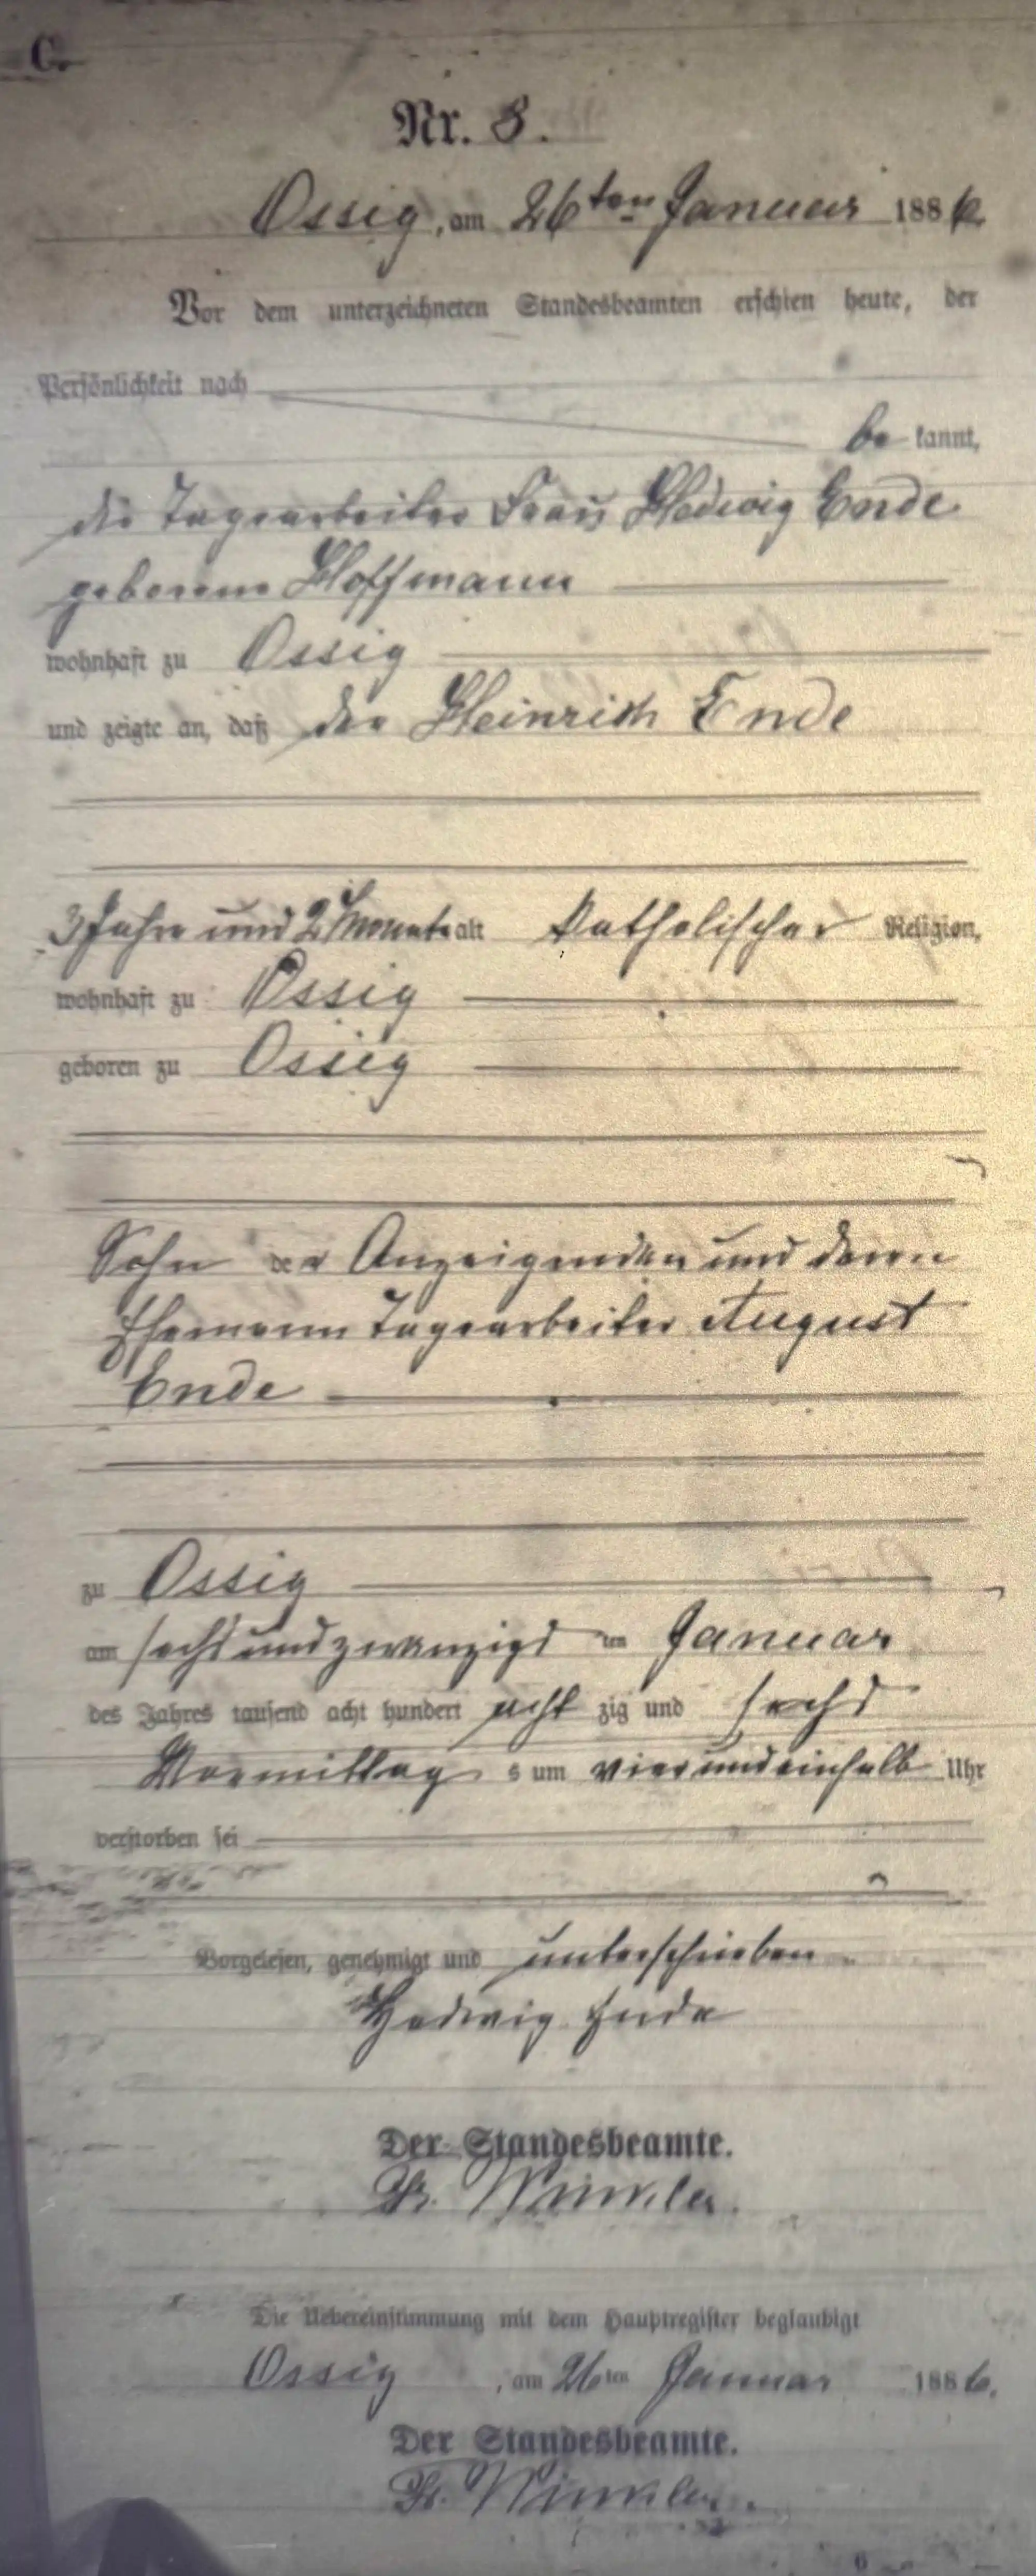 C.
Nr. 8.
Ossig, am 26ten Januar 1886
Vor dem unterzeichneten Standesbeamten erschien heute, der
Persönlichkeit nach
be kannt,
die Tagearbeiter Frau Hedwig Ende
geborene Hoffmann
wohnhaft zu Ossig
und zeigte an, daß der Heinrich Ende
3 Jahre und 2 Monate alt katholischer Religion,
wohnhaft zu Ossig
geboren zu Ossig
Sohn der Anzeigenden und deren
Ehemann Tagearbeiter August
Ende
zu Ossig
am sechsundzwanzigs ten Januar
des Jahres tausend acht hundert acht zig und sechs
Vormittag s um vierundeinhalb Uhr
verstorben sei
Vorgelesen, genehmigt und unterschrieben
Hedwig Ende
Der Standesbeamte.
Fr. Winkler.
Die Uebereinstimmung mit dem Hauptregister beglaubigt
Ossig, am 26ten Januar 1886.
Der Standesbeamte.
Fr. Winkler.